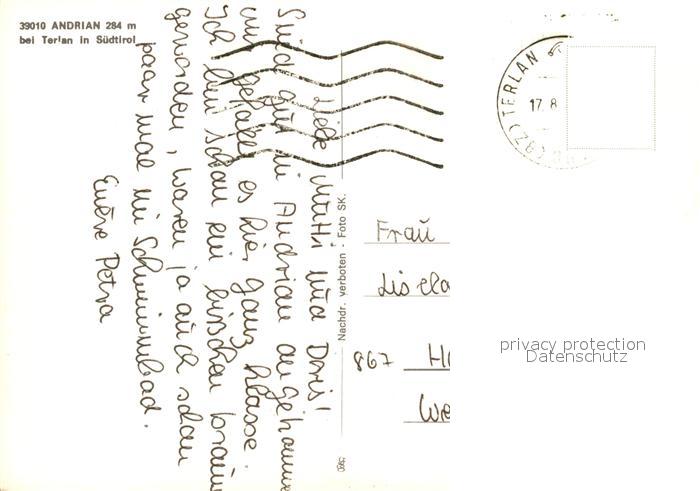 39010 ANDRIAN 284 m
bei Terlan in Südtirol
Liebe Mutti und Doris!
Sind gut in Andrian angekommen
und gefällt es hier ganz klasse.
Ich bin schon ein bißchen braun
geworden, waren ja auch schon
paar mal im Schwimmbad.
Euere Petra
Nachdr. verboten - Foto SK.
TERLAN
17.8
Frau
867
privacy protection
Datenschutz